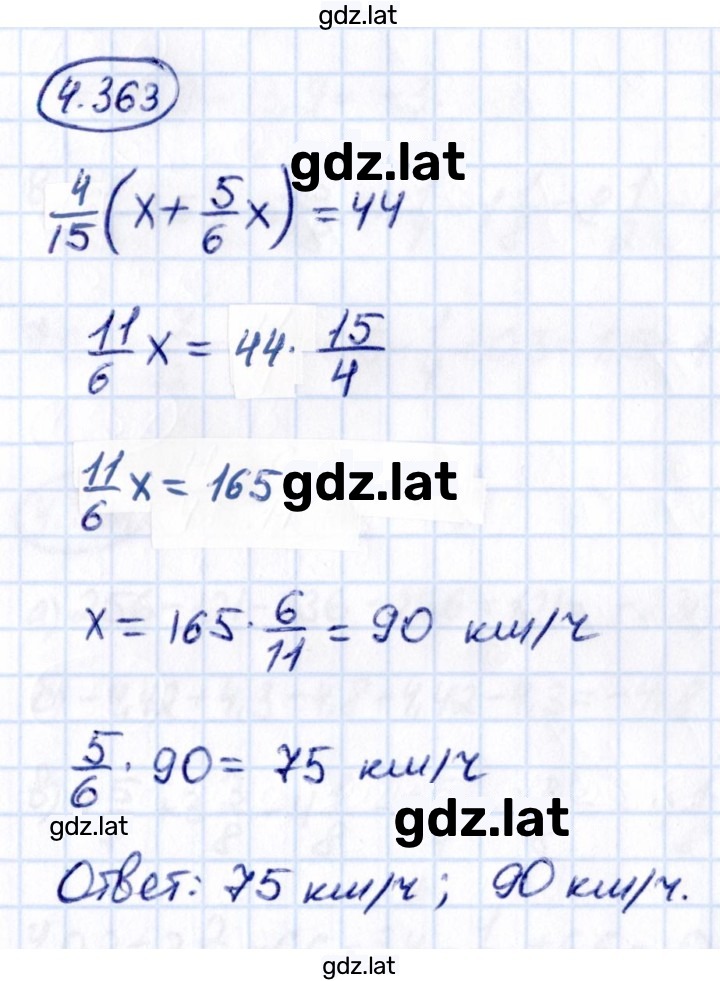 gdz.lat
4.363
gdz.lat
4/15 (x + 5/6 x) = 44
11/6 x = 44 · 15/4
11/6 x = 165 gdz.lat
x = 165 · 6/11 = 90 км/ч
5/6 · 90 = 75 км/ч
gdz.lat
gdz.lat
Ответ: 75 км/ч ; 90 км/ч.
gdz.lat